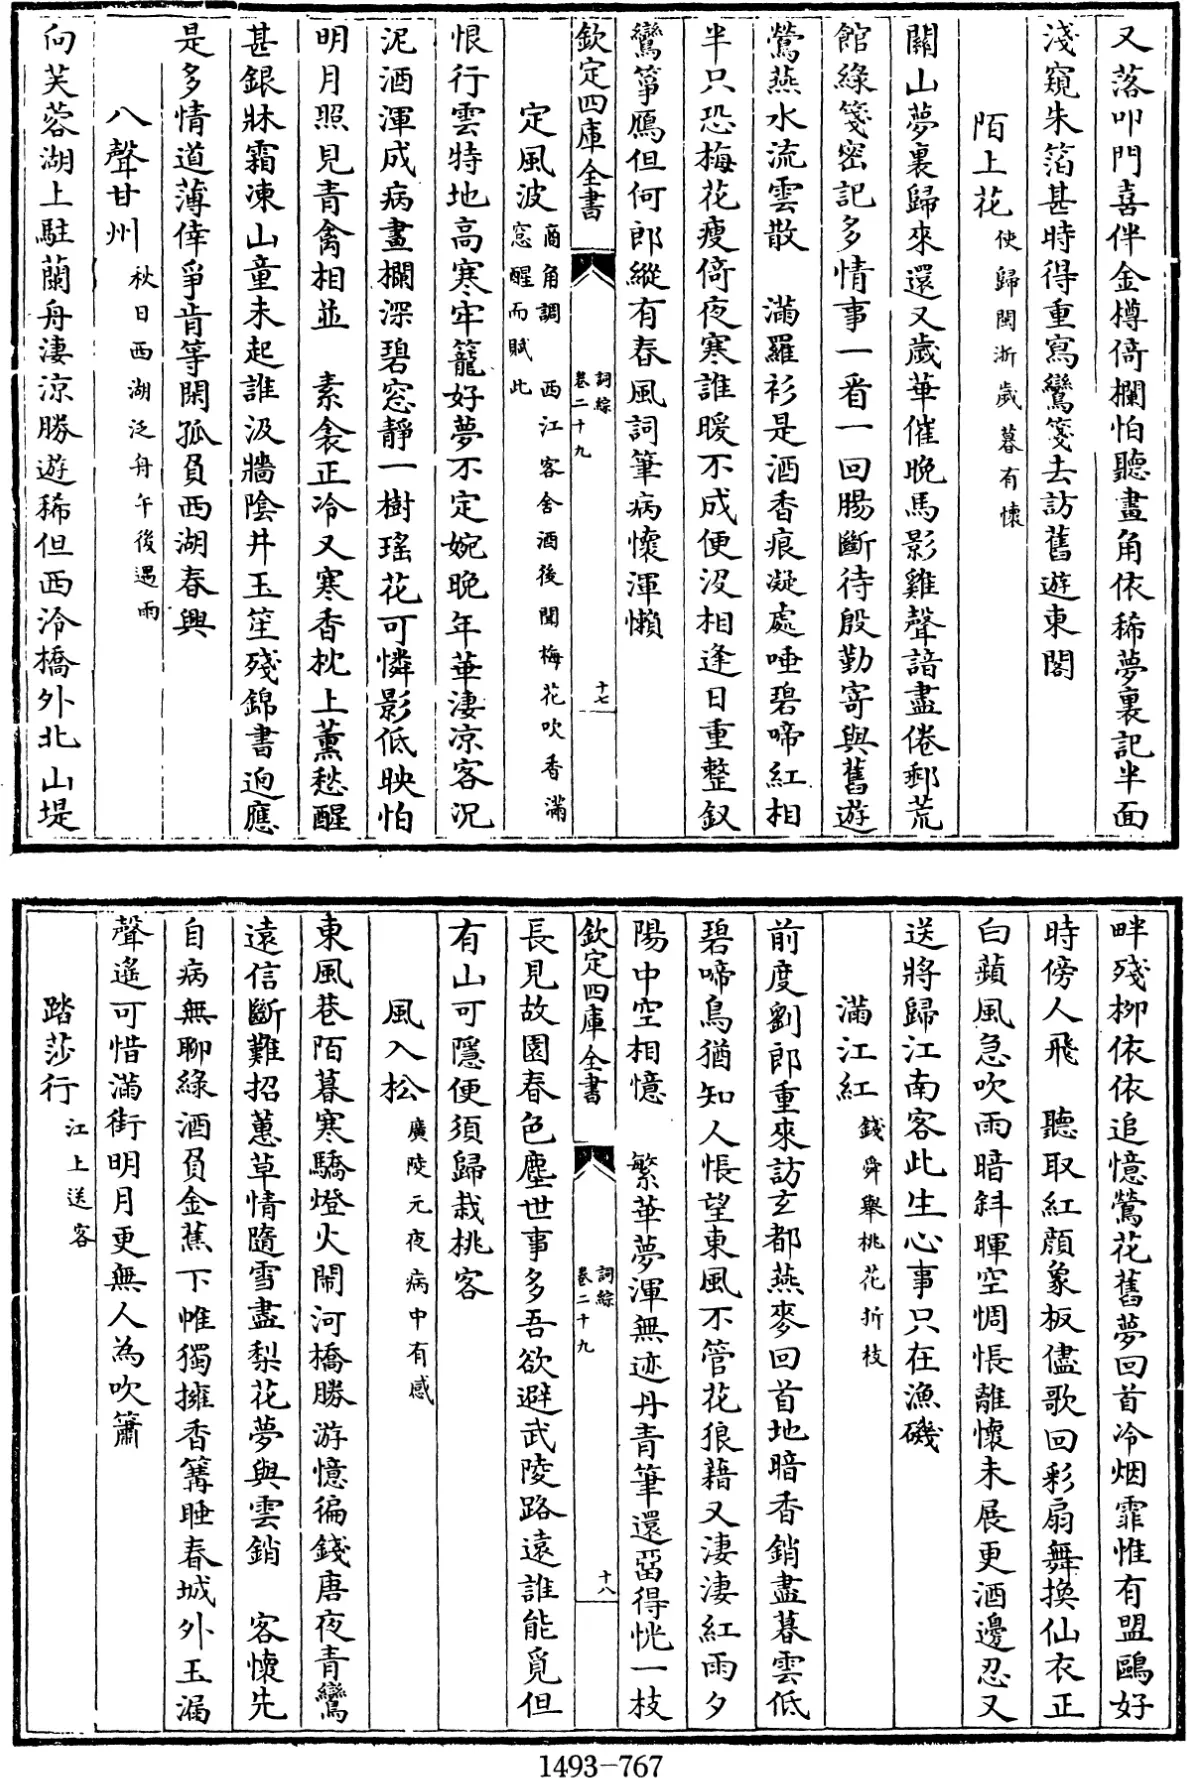 又落叩門喜伴金樽倚欄怕聽畫角依稀夢裏記半面
淺窺朱箔甚時得重寫鸞箋去訪舊遊東閣
陌上花使歸閩浙歲暮有懷
關山夢裏歸來還又歲華催晚馬影雞聲諳盡倦郵荒
館綠箋密記多情事一看一回腸斷待殷勤寄與舊遊
鶯燕水流雲散　滿羅衫是酒香痕凝處唾碧啼紅相
半只恐梅花瘦倚夜寒誰暖不成便沒相逢日重整釵
鸞箏鴈但何郎縱有春風詞筆病懷渾懶
欽定四庫全書
詞綜
卷二十九
十七
定風波商角調　西江客舍酒後聞梅花吹香滿
窓醒而賦此
恨行雲特地高寒牢籠好夢不定婉晚年華淒凉客況
泥酒渾成病畫欄深碧窓靜一樹瑤花可憐影低映怕
明月照見青禽相並　素衾正冷又寒香枕上薰愁醒
甚銀牀霜凍山童未起誰汲牆陰井玉笙殘錦書迥應
是多情道薄倖爭肯等閑孤負西湖春興
八聲甘州秋日西湖泛舟午後遇雨
向芙蓉湖上駐蘭舟淒涼勝遊稀但西泠橋外北山堤
畔殘柳依依追憶鶯花舊夢回首冷烟霏惟有盟鷗好
時傍人飛　聽取紅顔象板儘歌回彩扇舞換仙衣正
白蘋風急吹雨暗斜暉空惆悵離懷未展更酒邊忍又
送將歸江南客此生心事只在漁磯
滿江紅錢舜舉桃花折枝
前度劉郎重來訪玄都燕麥回首地暗香銷盡暮雲低
碧啼鳥猶知人悵望東風不管花狼藉又淒淒紅雨夕
陽中空相憶　繁華夢渾無迹丹青筆還留得恍一枝
欽定四庫全書
詞綜
卷二十九
十八
長見故園春色塵世事多吾欲避武陵路遠誰能覓但
有山可隱便須歸栽桃客
風入松廣陵元夜病中有感
東風巷陌暮寒驕燈火鬧河橋勝游憶徧錢唐夜青鸞
遠信斷難招蕙草情隨雪盡梨花夢與雲銷　客懷先
自病無聊綠酒負金蕉下帷獨擁香篝睡春城外玉漏
聲遙可惜滿街明月更無人為吹簫
踏莎行江上送客
1493—767